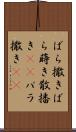 ばら撒きば
ら蒔き散播
き バラ
撒き